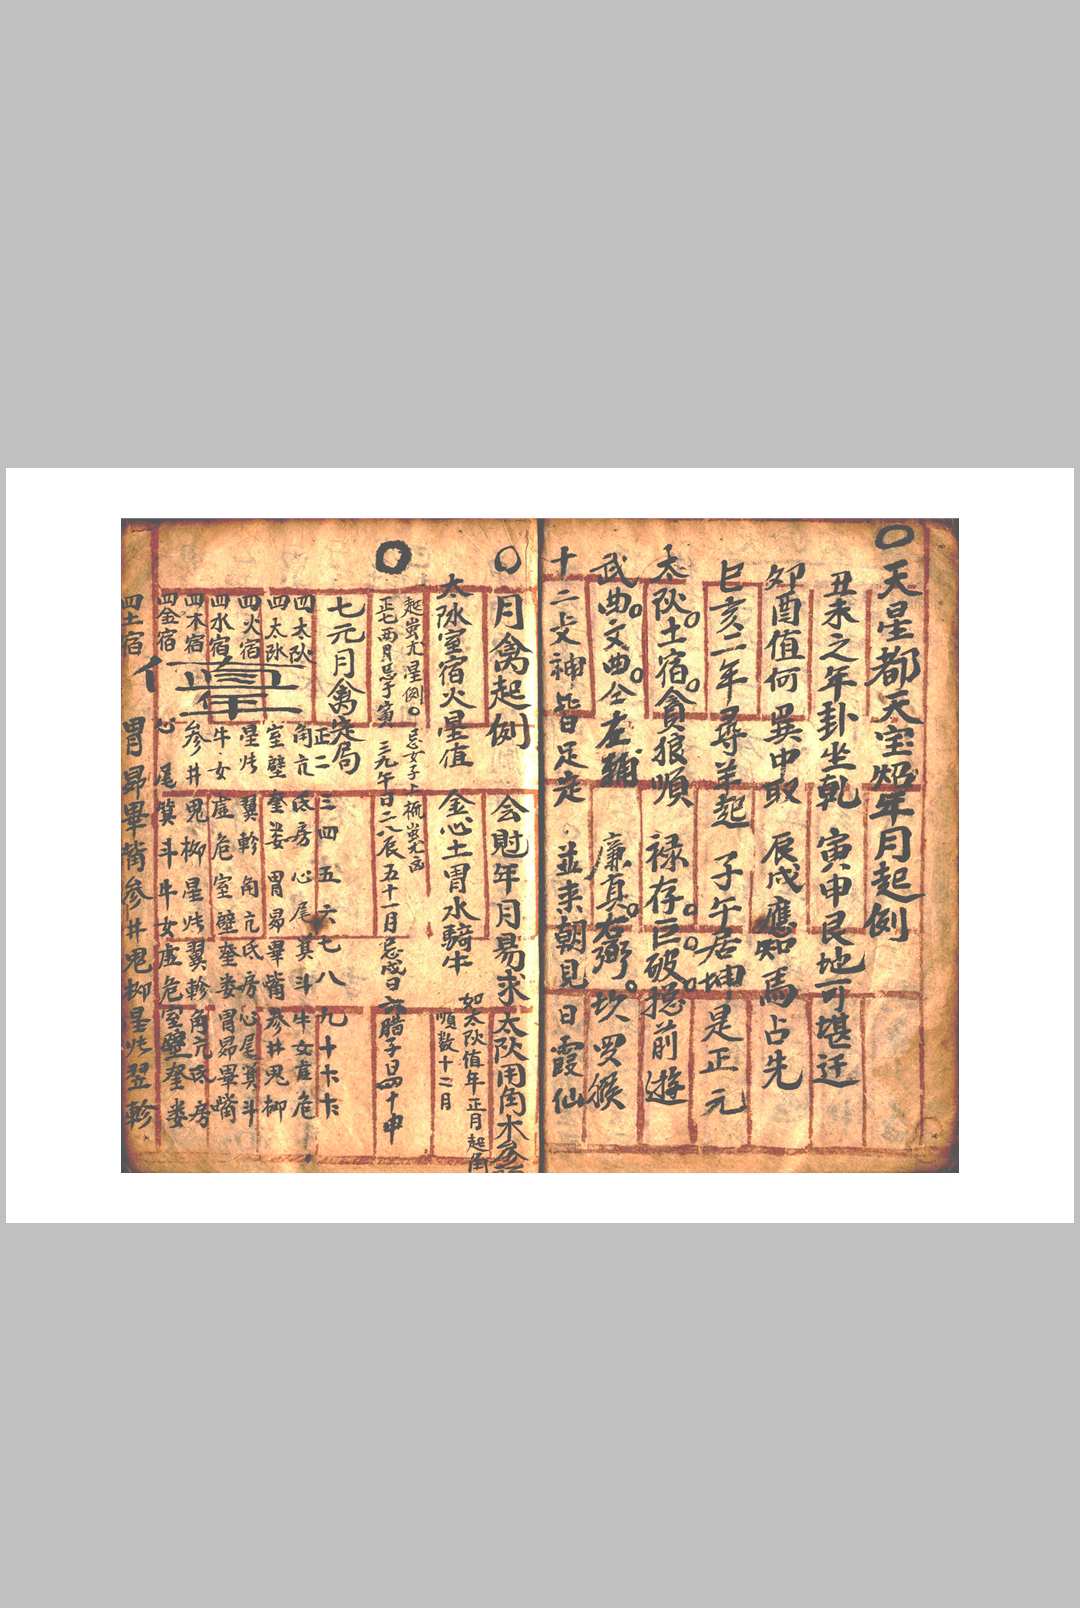 天星都天宝照年月起例
丑未之年卦坐乾 寅申艮地可堪迁
卯酉值何巽中取 辰戌應知馬占先
巳亥二年尋羊起 子午居坤是正元
太阦土宿貪狼順 禄存巨破掟前遊
武曲文曲仝左輔 廉真右弼坎罗猴
十二爻神皆足走 並来朝見日霞仙
月禽起例 会尅年月易求太阦用角木参
太阴室宿火星值 金心土胃水騎牛
如太阦值年正月起角
順数十二月
起蚩尤星例 忌女子上梳蚩尤凶
正七两月忌子寅 三九午日二八辰 五十一月忌戌日 六腊子日四十申
七元月禽定局
正二 三四 五六七八九十
四太阦 角亢 氐房 心尾箕斗牛女虚危
四太阴 室壁 奎娄 胃昴畢觜参井鬼柳
四火宿 星张 翼軫 角亢氐房心尾箕斗
四水宿 牛女 虚危室壁奎娄胃昴畢觜
四木宿 参井鬼柳星张翼軫角亢氐房
四金宿 心尾箕斗牛女虚危室壁奎娄
四土宿 胃昴畢觜参井鬼柳星张翌軫
值年